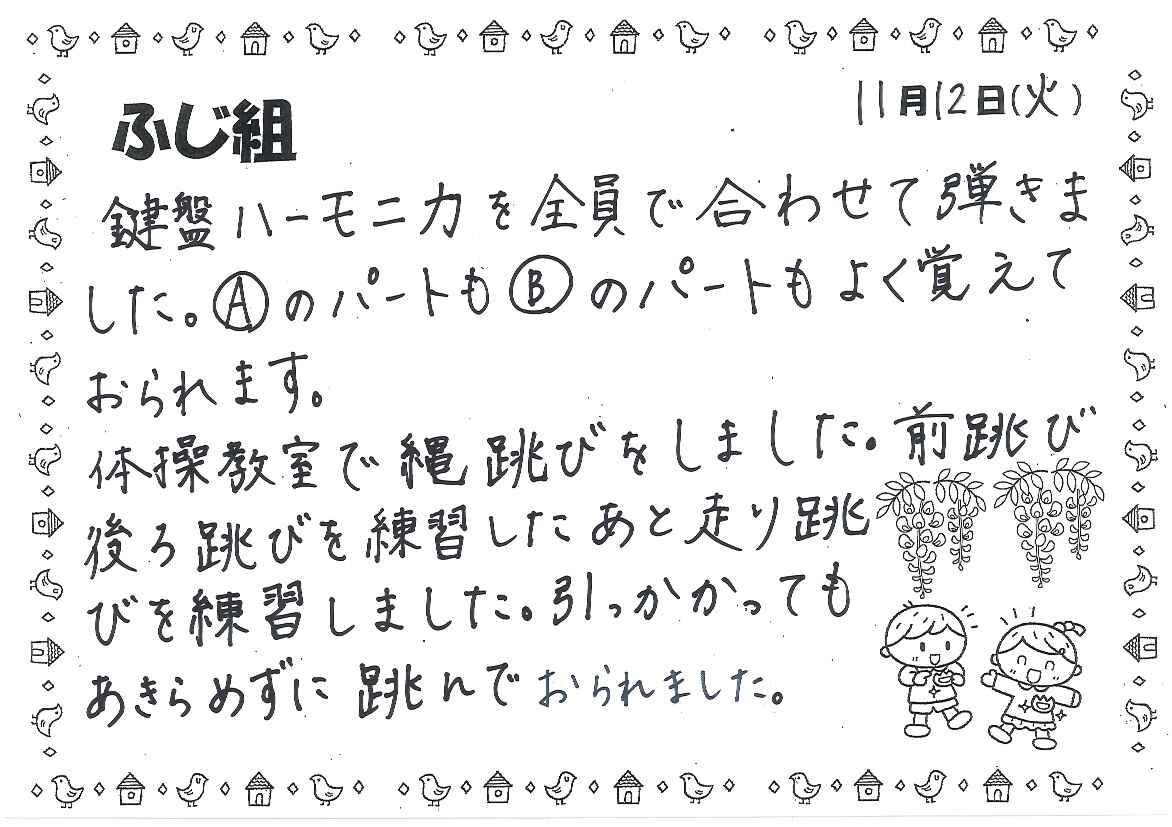 ふじ組
11月12日(火)
鍵盤ハーモニカを全員で合わせて弾きま
した。Ⓐのパートも Ⓑのパートもよく覚えて
おられます。
体操教室で縄跳びをしました。前跳び
後ろ跳びを練習したあと走り跳
びを練習しました。引っかかっても
あきらめずに跳んでおられました。